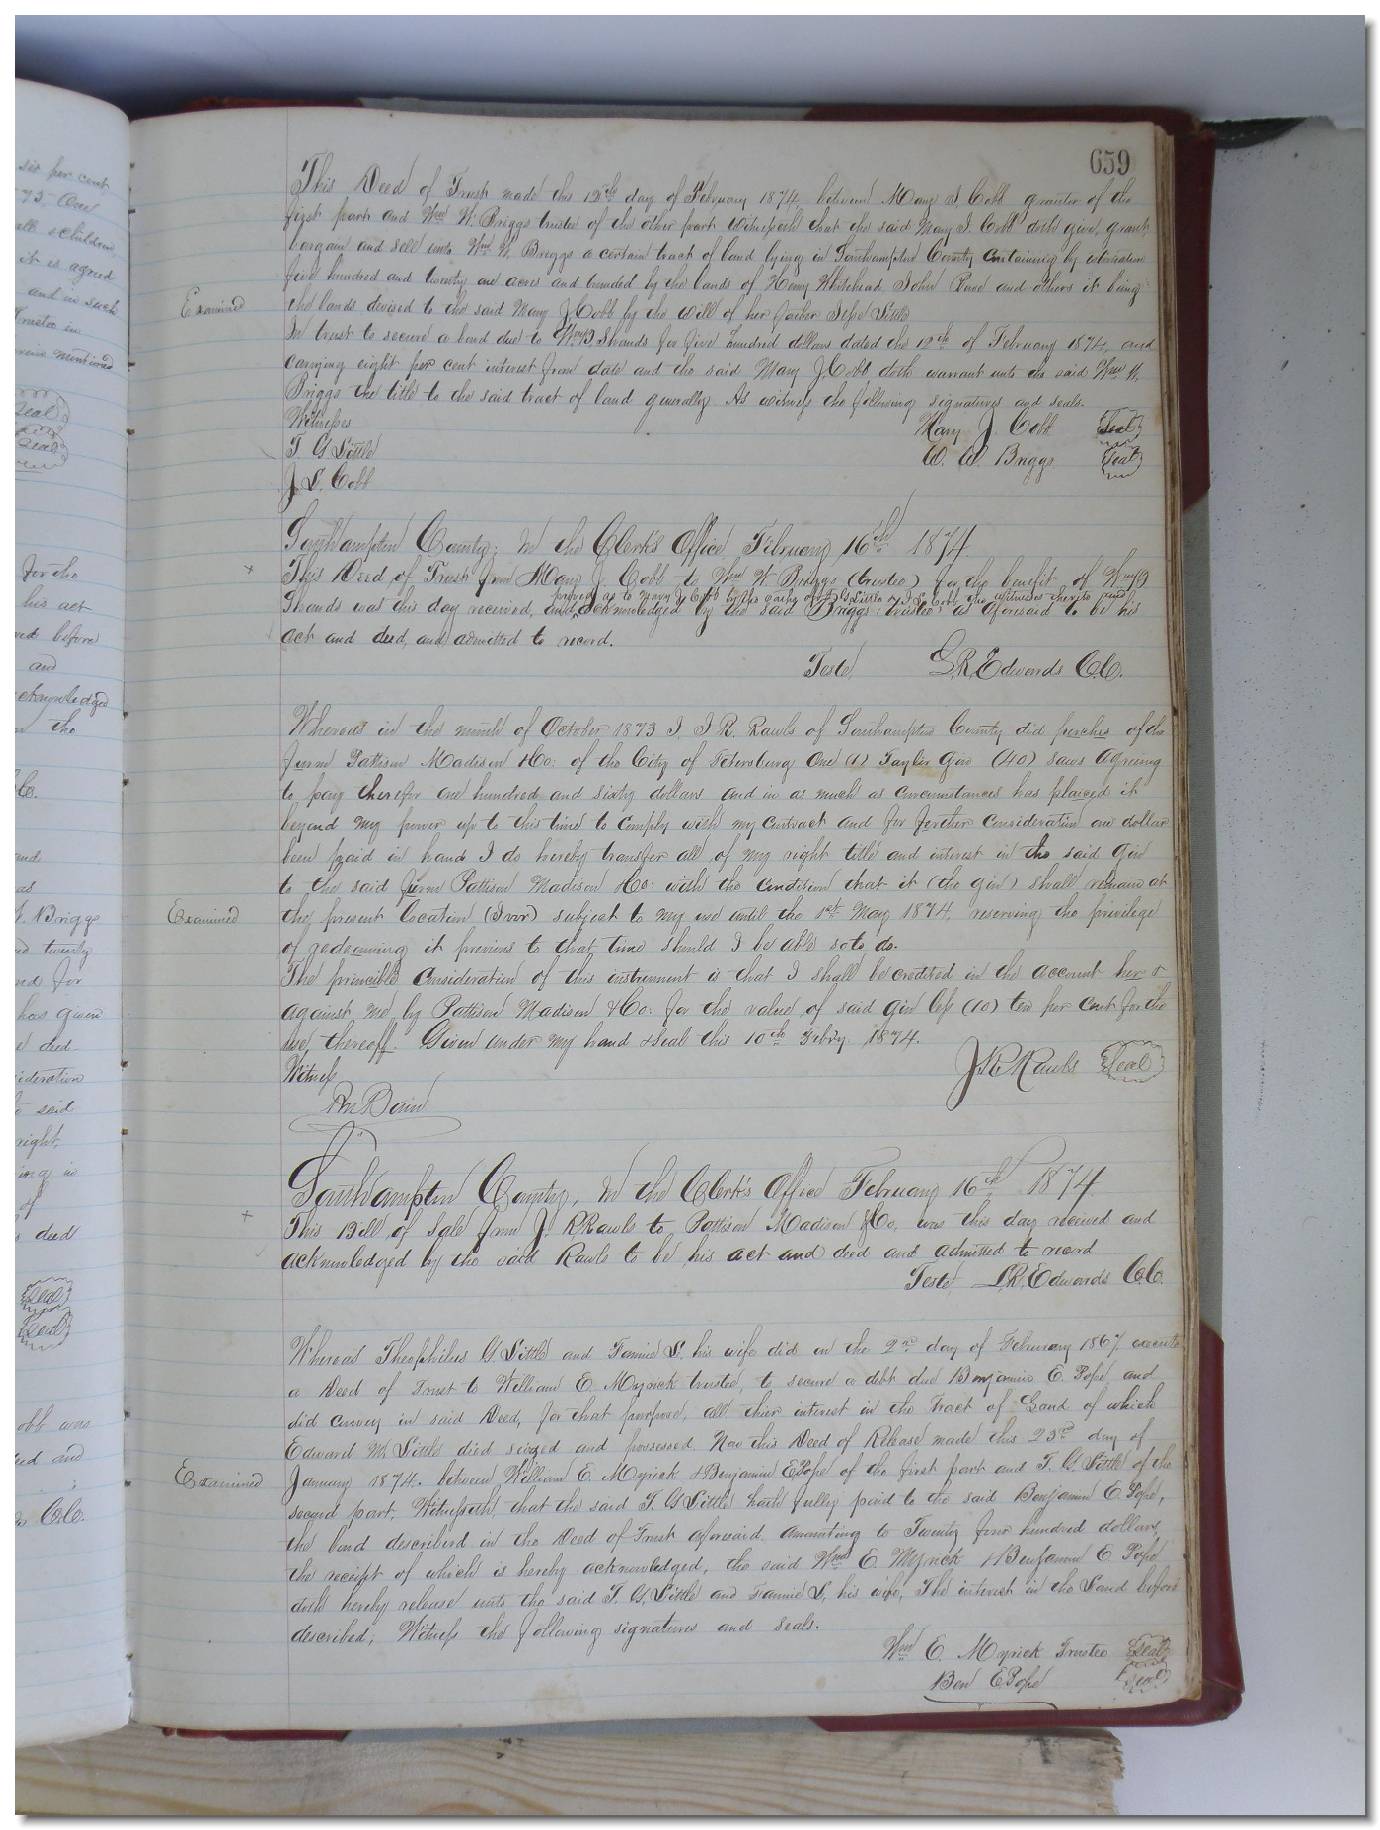 659
This Deed of Trust made this 12th day of February 1874, between Mary J. Cobb grantor of the
first part and Wm W. Briggs trustee of the other part Witnesseth that the said Mary J. Cobb doth give, grant,
bargain and sell unto Wm W. Briggs a certain tract of land lying in Southampton County containing by
five hundred and twenty one acres and bounded by the lands of Henry Whitehead, John and others it being
Examined
the lands devised to the said Mary J. Cobb by the will of her father Jesse Little
In trust to secure a bond due to Wm D. Shands for five hundred dollars dated the 12th of February 1874, and
carrying eight per cent interest from date and the said Mary J. Cobb doth warrant unto the said Wm W.
Briggs the title to the said tract of land generally. As witness the following signatures and seals.
Witnesses
Mary J. Cobb Seal
T. G Little
W. W. Briggs Seal
J. S. Cobb
Southampton County; In the Clerk's Office February 16th 1874
This Deed of Trust from Mary J. Cobb to Wm W. Briggs (trustee) for the benefit of Wm D
proved as to Mary J Cobb by the oaths of T. G. Little & J. S. Cobb the witnesses thereto and
Shands was this day received, and acknowledged by the said Briggs trustee as aforesaid to be his
act and deed, and admitted to record.
Teste, L. R. Edwards C.C.
Whereas in the month of October 1873 I, J R. Rawls of Southampton County did purches of the
firm Pattison Madison & Co: of the City of Petersburg One (1) Taylor Gin (40) saws agreeing
to pay therefor one hundred and sixty dollars and in as much as circumstances has placed it
beyond my power up to this time to comply with my contract and for further consideration one dollar
been paid in hand I do hereby transfer all of my right title and interest in the said Gin
to the said firm Pattison Madison & Co: with the condition that it (the gin) shall remain at
Examined
the present location (Ivor) subject to my use until the 1st May 1874, reserving the privilege
of redeeming it previous to that time should I be able so to do.
The principle consideration of this instrument is that I shall be credited in the account her o
against me by Pattison Madison & Co: for the value of said gin less (10) ten per cent for the
use thereoff. Given under my hand & Seal this 10th Febry 1874.
Witness
J. R. Rawls Seal
Southampton County, In the Clerk's Office February 16th 1874
This Bill of Sale from J. R. Rawls to Pattison Madison & Co, was this day received and
acknowledged by the said Rawls to be his act and deed and admitted to record
Teste L. R. Edwards C.C.
Whereas Theophilus G Little and Fannie S. his wife did on the 2nd day of February 1867, execute
a Deed of Trust to William E. Myrick trustee, to secure a debt due Benjamin E. Pope, and
did convey in said Deed, for that purpose, all thier interest in the Tract of Land of which
Edward M. Little died seized and possessed. Now this Deed of Release made this 23rd day of
Examined
January 1874. between William E. Myrick & Benjamin E Pope of the first part and T. G. Little of the
second part, Witnesseth, that the said T. G Little hath fully paid to the said Benjamin E. Pope,
the bond described in the Deed of Trust aforesaid amounting to Twenty four hundred dollars,
the receipt of which is hereby acknowledged, the said Wm E. Myrick & Benjamin E Pope
doth hereby release unto the said T. G. Little and Fannie S, his wife, The interest in the Land before
described; Witness the following signatures and seals.
Wm E. Myrick Trustee Seal
Ben E Pope Seal